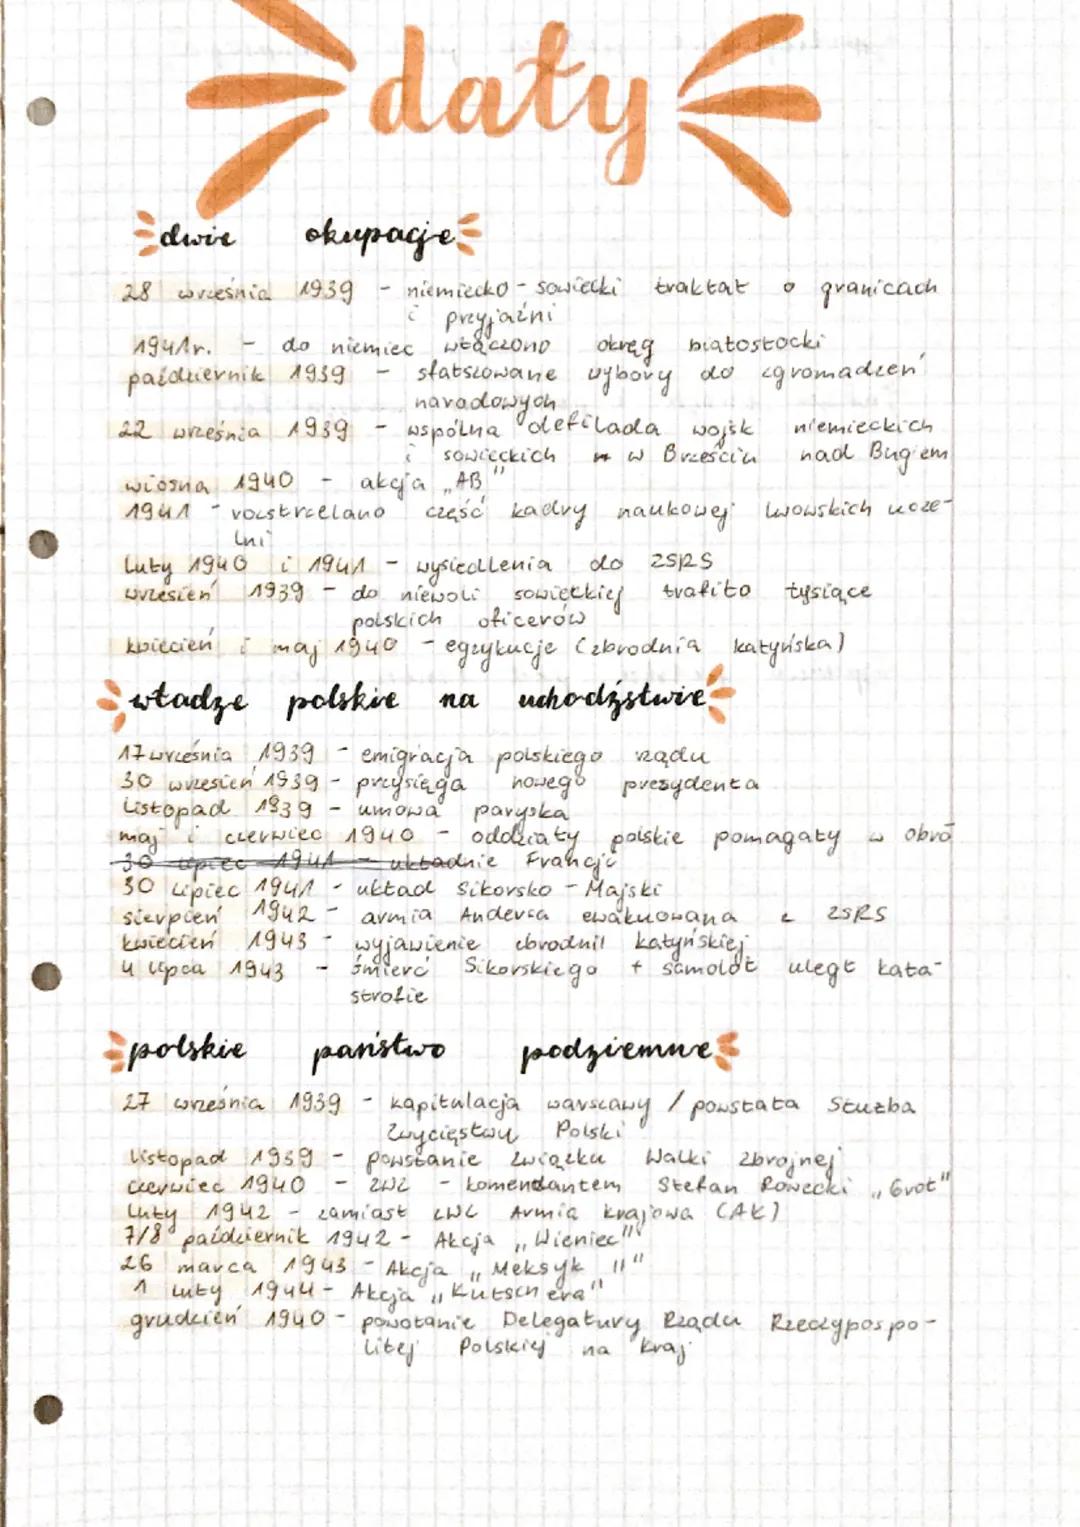 daty
dwie okupacje
28 września 1939 - niemiecko-sowiecki traktat o granicach
i przyjaźni
1941r. - do niemiec włączono okręg białostocki
październik 1939 - sfałszowane wybory do zgromadzeń
narodowych
22 września 1939 - wspólna defilada wojsk niemieckich
i sowieckich w Brześciu nad Bugiem
wiosna 1940 - akcja „AB"
1941 - rozstrzelano część kadry naukowej lwowskich ucze-
lni
luty 1940 i 1941 - wysiedlenia do ZSRS
wrzesień 1939 - do niewoli sowieckiej trafiło tysiące
polskich oficerów
kwiecień i maj 1940 - egzykucje (zbrodnia katyńska)
władze polskie na uchodźstwie
17 września 1939 - emigracja polskiego rządu
30 wrzesień 1939 - przysięga nowego prezydenta
listopad 1939 - umowa paryska
maj i czerwiec 1940 - oddziały polskie pomagały w obro
30 lipiec 1941 - układnie Francji
30 lipiec 1941 - układ Sikorsko - Majski
sierpień 1942 - armia Andersa ewakuowana z ZSRS
kwiecień 1943 - wyjawienie zbrodnii katyńskiej
4 lipca 1943 - śmierć Sikorskiego + samolot uległ kata-
strofie
polskie państwo podziemne
27 września 1939 - kapitulacja warszawy / powstała Służba
Zwycięstwu Polski
listopad 1939 - powstanie Związku Walki zbrojnej
czerwiec 1940 - ZWZ - komendantem Stefan Rowecki „Grot"
luty 1942 - zamiast ZWZ Armia krajowa (AK)
7/8 październik 1942 - Akcja „Wieniec"
26 marca 1943 - Akcja „Meksyk II"
1 luty 1944 - Akcja „Kutschera"
grudzień 1940 - powołanie Delegatury Rządu Rzeczypospo-
litej Polskiej na kraj